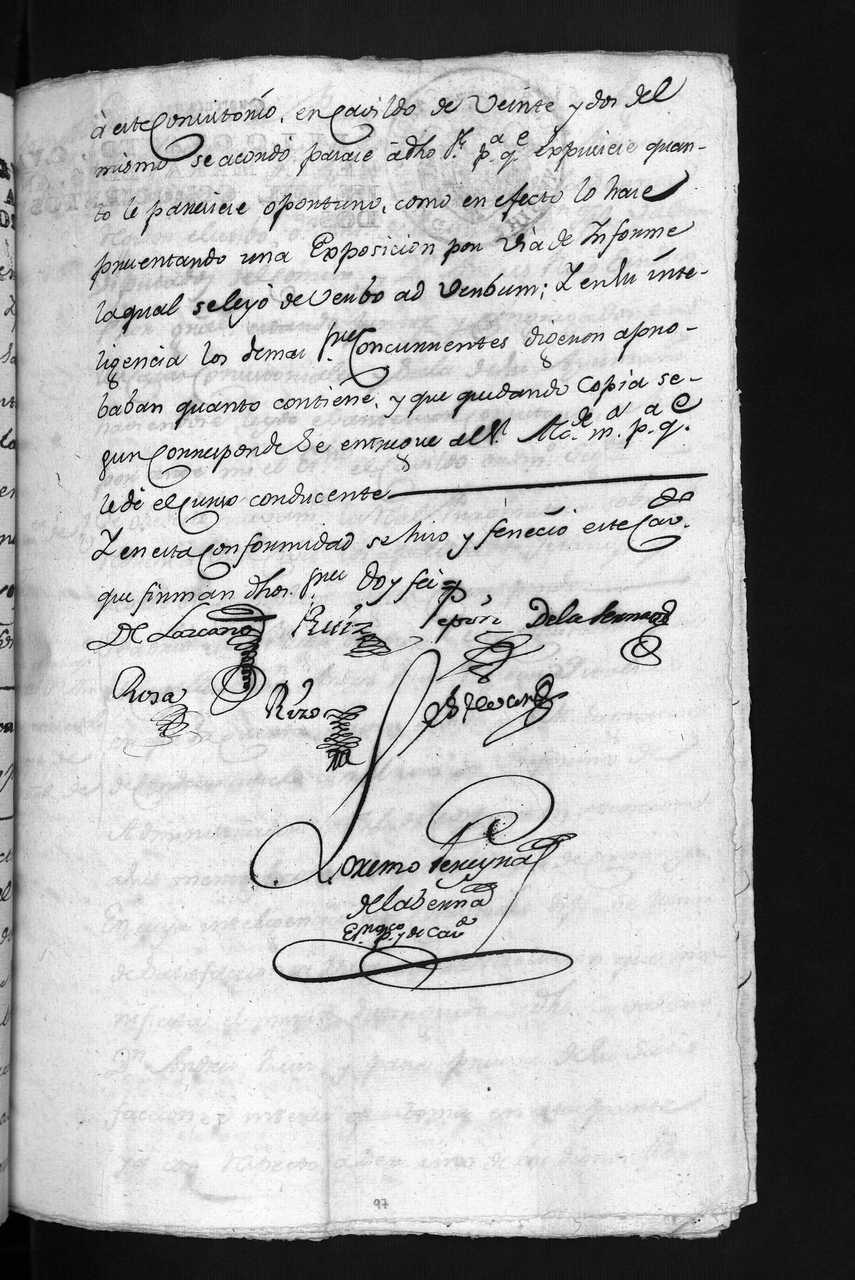 à este Consistorio, en Cavildo de Veinte y dos del
mismo se acordó pasase âdho Sr. pa. qe. Expusiese quan-
to le pareciere oportuno, como en efecto lo hace
presentando una Exposicion por via de Informe
laqual se leyó de Verbo ad Verbum; Y en su inte-
ligencia los demas Sres Concurrentes digeron apro-
baban quanto contiene, y que quedando Copia se-
gun Corresponde Se entregue al Sr. Alcde. mr. pa. qe.
le dé el Curso conducente
Y en esta Conformidad se hizo y feneció este Cavdo.
que firman dhos. Sres Doy feé
Lazcano Ruiz De la Serna
Rosa Rizo
Lorenzo Pereyra
de la Serna
Esno. pco. y de Cavdo
97